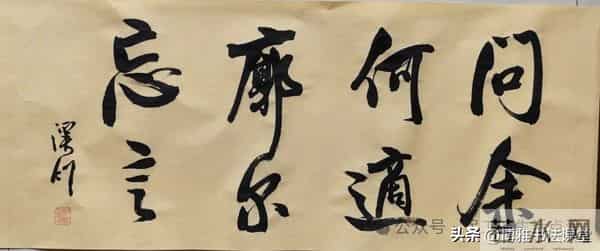 问余
何適
廓尔
忘言
公众号
头条 @博雅书法课堂